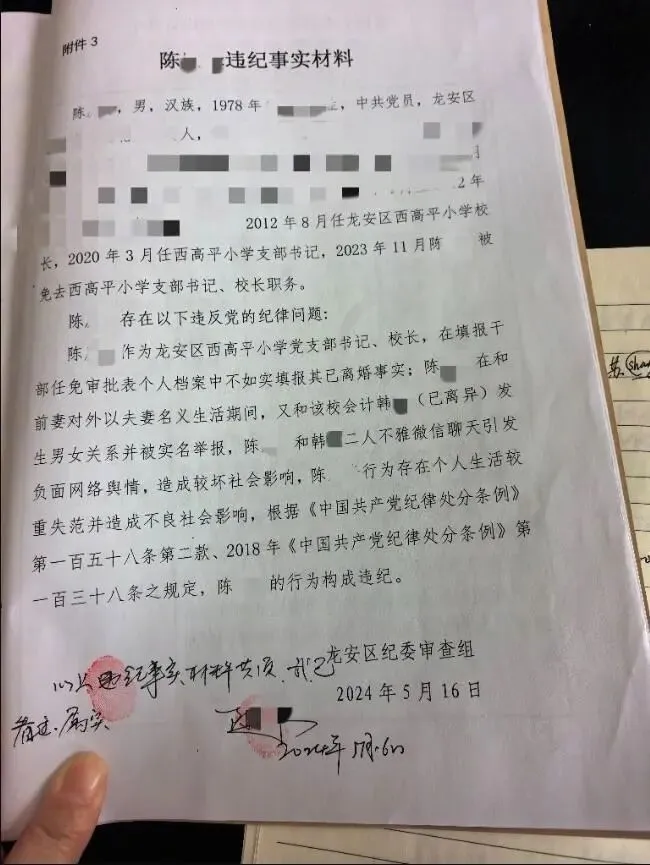 附件3
陈 违纪事实材料
陈 ，男，汉族，1978年 ，中共党员，龙安区
人，
2年
2012年8月任龙安区西高平小学校
长，2020年3月任西高平小学支部书记，2023年11月陈 被
免去西高平小学支部书记、校长职务。
陈 存在以下违反党的纪律问题：
陈 作为龙安区西高平小学党支部书记、校长，在填报干
部任免审批表个人档案中不如实填报其已离婚事实；陈 在和
前妻对外以夫妻名义生活期间，又和该校会计韩 （已离异）发
生男女关系并被实名举报，陈 和韩 二人不雅微信聊天引发
负面网络舆情，造成较坏社会影响，陈 行为存在个人生活较
重失范并造成不良社会影响，根据《中国共产党纪律处分条例》
第一百五十八条第二款、2018年《中国共产党纪律处分条例》第
一百三十八条之规定，陈 的行为构成违纪。
龙安区纪委审查组
2024年5月16日
以上违纪事实材料共1页，我已
看过.属实
2024年5月16日